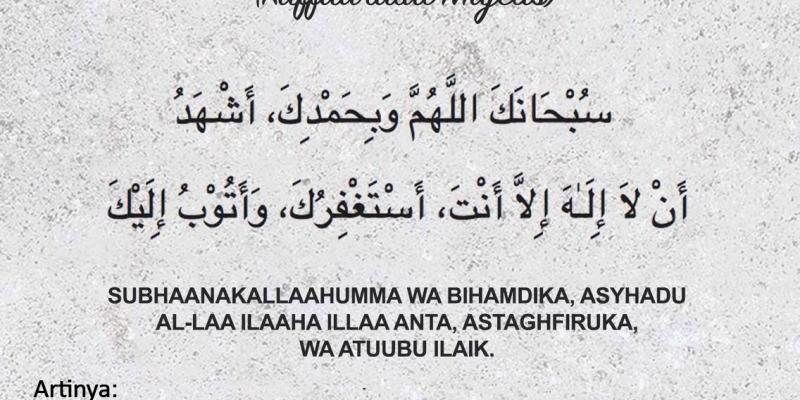 سُبْحَانَكَ اللَّهُمَّ وَبِحَمْدِكَ، أَشْهَدُ
أَنْ لاَ إِلَـٰهَ إِلاَّ أَنْتَ، أَسْتَغْفِرُكَ، وَأَتُوْبُ إِلَيْكَ
SUBHAANAKALLAAHUMMA WA BIHAMDIKA, ASYHADU
AL-LAA ILAAHA ILLAA ANTA, ASTAGHFIRUKA,
WA ATUUBU ILAIK.
Artinya: